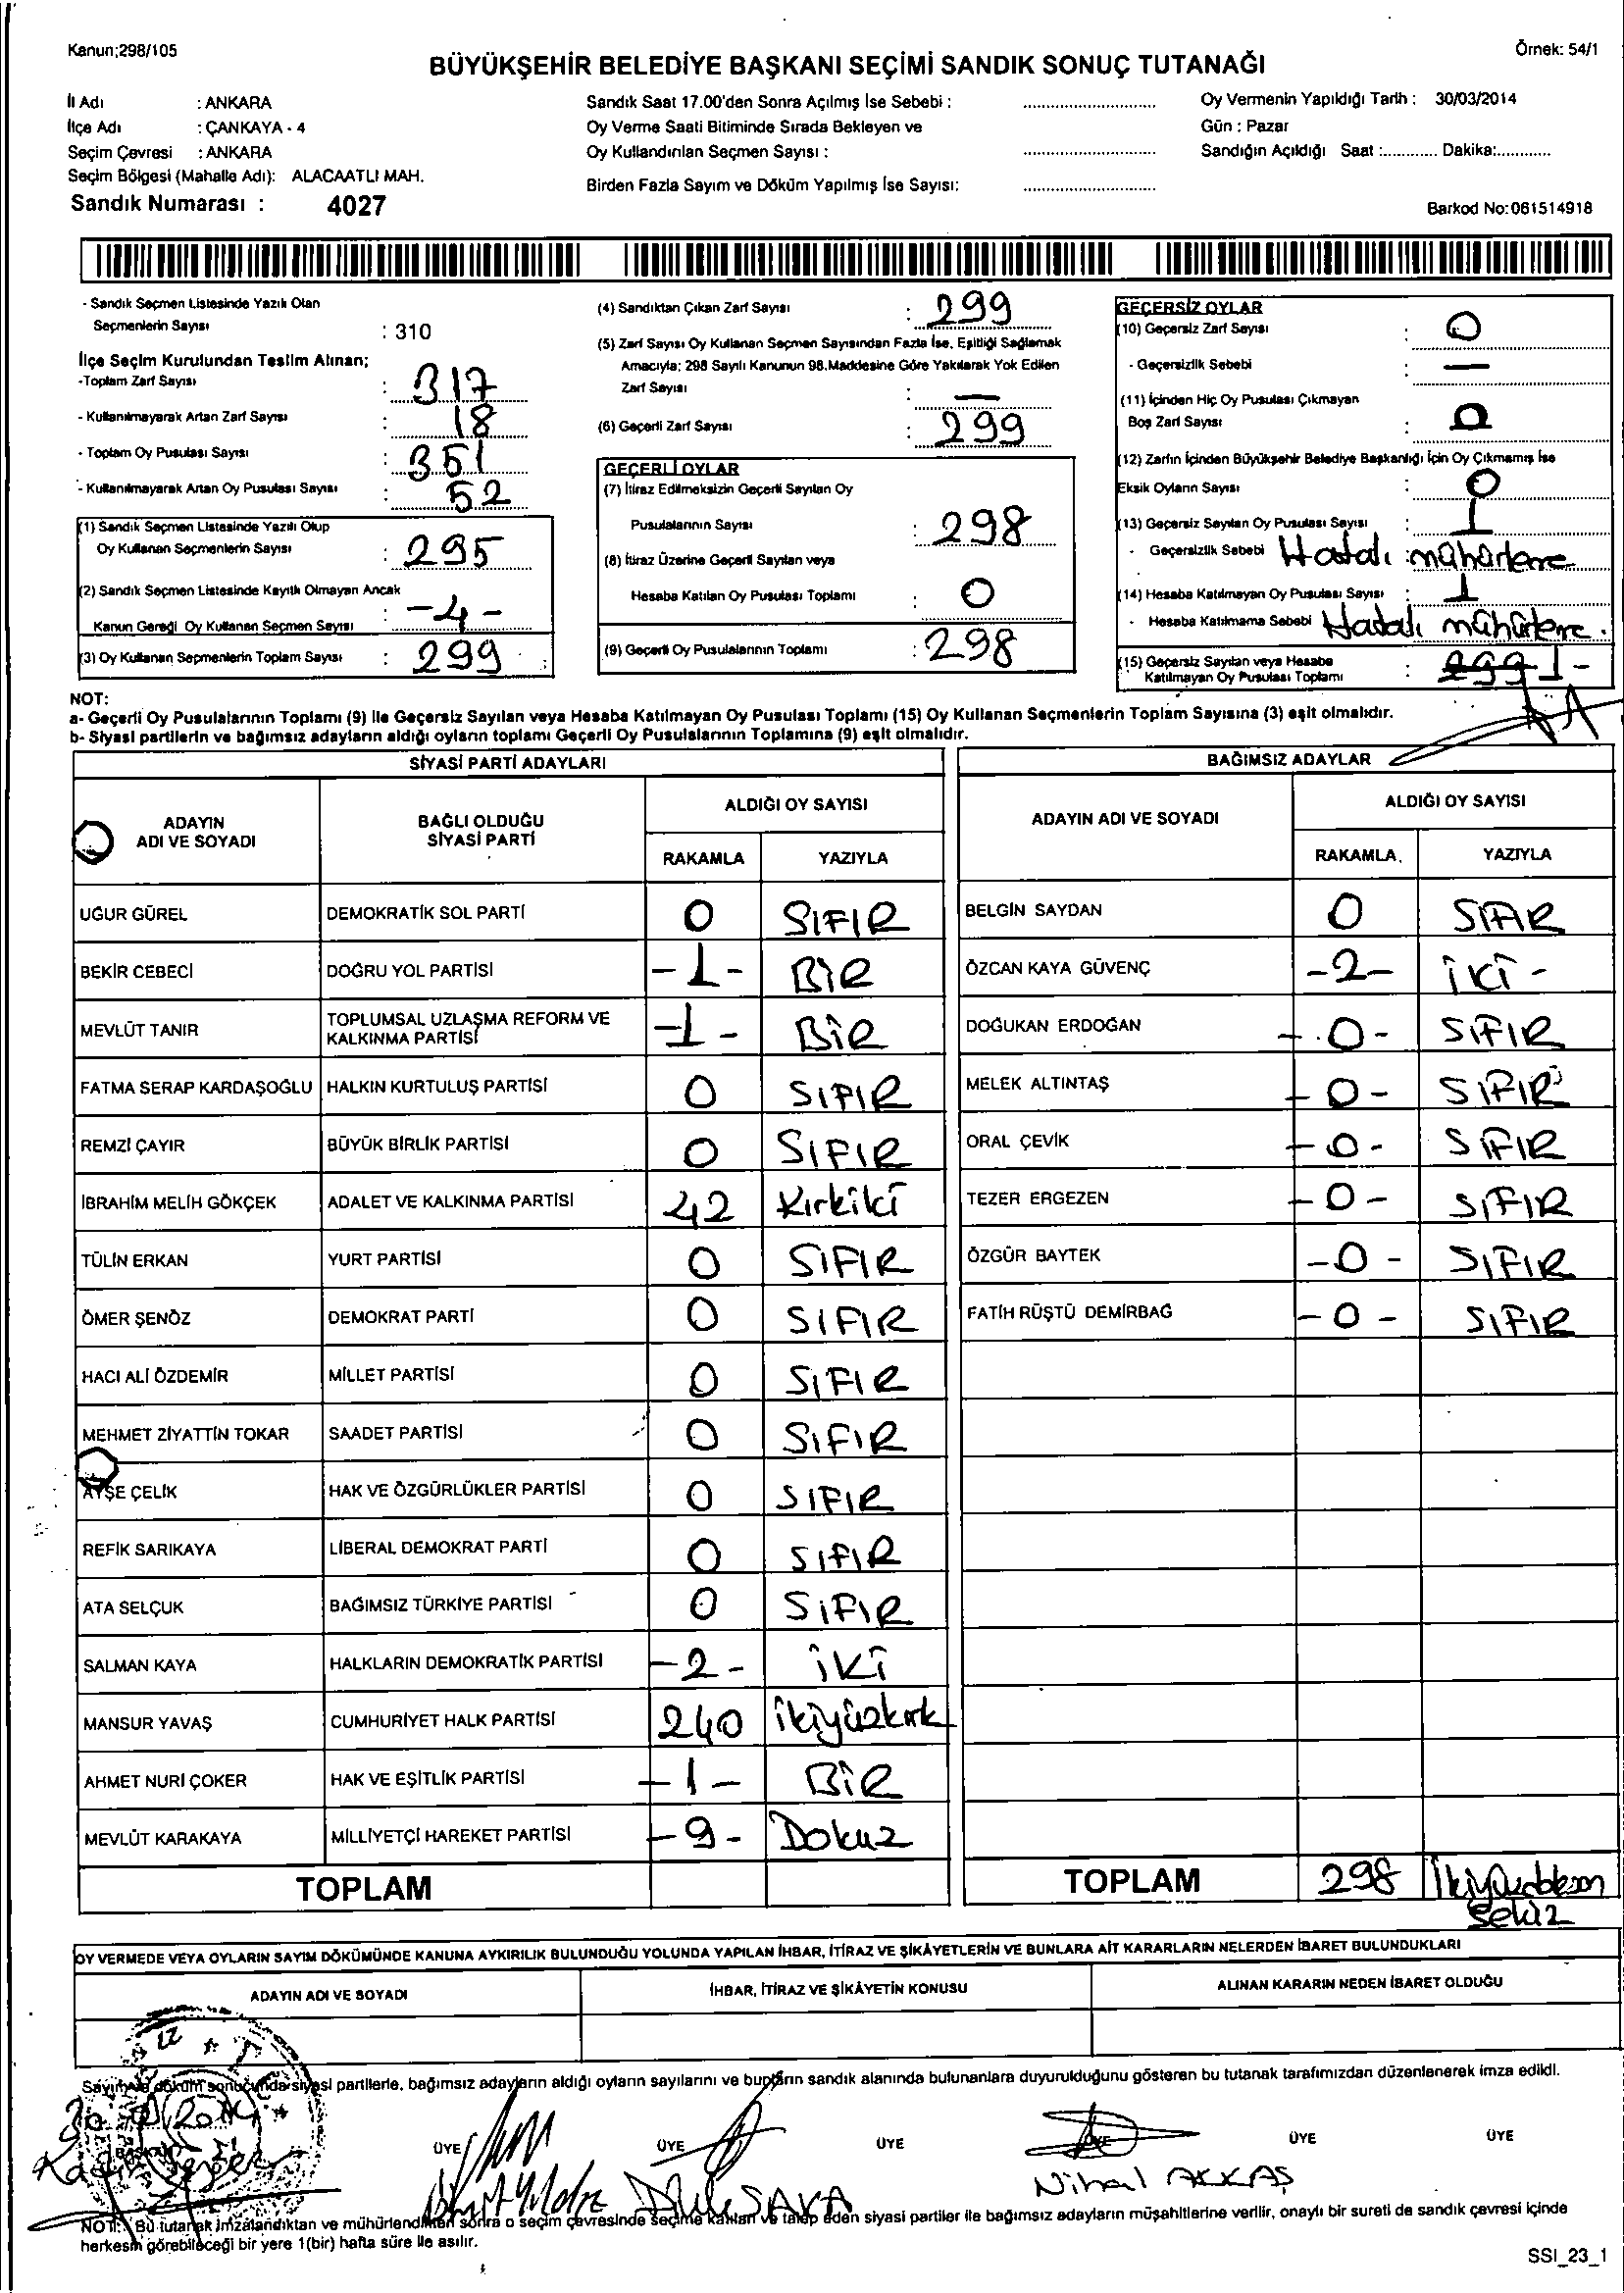 Kanun;298/105
Örnek: 54/1
BÜYÜKŞEHİR BELEDİYE BAŞKANI SEÇİMİ SANDIK SONUÇ TUTANAĞI
İl Adı : ANKARA
İlçe Adı : ÇANKAYA - 4
Seçim Çevresi : ANKARA
Seçim Bölgesi (Mahalle Adı): ALACAATLI MAH.
Sandık Numarası : 4027
Sandık Saat 17.00'den Sonra Açılmış İse Sebebi :
Oy Verme Saati Bitiminde Sırada Bekleyen ve
Oy Kullandırılan Seçmen Sayısı :
Birden Fazla Sayım ve Döküm Yapılmış İse Sayısı:
Oy Vermenin Yapıldığı Tarih : 30/03/2014
Gün : Pazar
Sandığın Açıldığı Saat :............ Dakika:............
Barkod No:061514918
- Sandık Seçmen Listesinde Yazılı Olan
Seçmenlerin Sayısı : 310
İlçe Seçim Kurulundan Teslim Alınan;
-Toplam Zarf Sayısı : 317
- Kullanılmayarak Artan Zarf Sayısı : 18
- Toplam Oy Pusulası Sayısı : 351
- Kullanılmayarak Artan Oy Pusulası Sayısı : 52
(1) Sandık Seçmen Listesinde Yazılı Olup
Oy Kullanan Seçmenlerin Sayısı : 295
(2) Sandık Seçmen Listesinde Kayıtlı Olmayan Ancak
Kanun Gereği Oy Kullanan Seçmen Sayısı : -4-
(3) Oy Kullanan Seçmenlerin Toplam Sayısı : 299
(4) Sandıktan Çıkan Zarf Sayısı : 299
(5) Zarf Sayısı Oy Kullanan Seçmen Sayısından Fazla İse, Eşitliği Sağlamak
Amacıyla; 298 Sayılı Kanunun 98.Maddesine Göre Yakılarak Yok Edilen
Zarf Sayısı : —
(6) Geçerli Zarf Sayısı : 299
GEÇERLİ OYLAR
(7) İtiraz Edilmeksizin Geçerli Sayılan Oy
Pusulalarının Sayısı : 298
(8) İtiraz Üzerine Geçerli Sayılan veya
Hesaba Katılan Oy Pusulası Toplamı : 0
(9) Geçerli Oy Pusulalarının Toplamı : 298
GEÇERSİZ OYLAR
(10) Geçersiz Zarf Sayısı : 0
- Geçersizlik Sebebi : —
(11) İçinden Hiç Oy Pusulası Çıkmayan
Boş Zarf Sayısı : 0
(12) Zarfın İçinden Büyükşehir Belediye Başkanlığı İçin Oy Çıkmamış İse
Eksik Oyların Sayısı : 0
(13) Geçersiz Sayılan Oy Pusulası Sayısı : 1
- Geçersizlik Sebebi Hatalı mühürleme
(14) Hesaba Katılmayan Oy Pusulası Sayısı : 1
- Hesaba Katılmama Sebebi Hatalı mühürleme.
(15) Geçersiz Sayılan veya Hesaba
Katılmayan Oy Pusulası Toplamı : 299 1-
NOT:
a- Geçerli Oy Pusulalarının Toplamı (9) ile Geçersiz Sayılan veya Hesaba Katılmayan Oy Pusulası Toplamı (15) Oy Kullanan Seçmenlerin Toplam Sayısına (3) eşit olmalıdır.
b- Siyasi partilerin ve bağımsız adayların aldığı oyların toplamı Geçerli Oy Pusulalarının Toplamına (9) eşit olmalıdır.
SİYASİ PARTİ ADAYLARI
ADAYIN
ADI VE SOYADI
BAĞLI OLDUĞU
SİYASİ PARTİ
ALDIĞI OY SAYISI
RAKAMLA YAZIYLA
UĞUR GÜREL DEMOKRATİK SOL PARTİ 0 SIFIR
BEKİR CEBECİ DOĞRU YOL PARTİSİ -1- BİR
MEVLÜT TANIR TOPLUMSAL UZLAŞMA REFORM VE
KALKINMA PARTİSİ -1- BİR
FATMA SERAP KARDAŞOĞLU HALKIN KURTULUŞ PARTİSİ 0 SIFIR
REMZİ ÇAYIR BÜYÜK BİRLİK PARTİSİ 0 SIFIR
İBRAHİM MELİH GÖKÇEK ADALET VE KALKINMA PARTİSİ 42 Kırkiki
TÜLİN ERKAN YURT PARTİSİ 0 SIFIR
ÖMER ŞENÖZ DEMOKRAT PARTİ 0 SIFIR
HACI ALİ ÖZDEMİR MİLLET PARTİSİ 0 SIFIR
MEHMET ZİYATTİN TOKAR SAADET PARTİSİ 0 SIFIR
AYŞE ÇELİK HAK VE ÖZGÜRLÜKLER PARTİSİ 0 SIFIR
REFİK SARIKAYA LİBERAL DEMOKRAT PARTİ 0 SIFIR
ATA SELÇUK BAĞIMSIZ TÜRKİYE PARTİSİ 0 SIFIR
SALMAN KAYA HALKLARIN DEMOKRATİK PARTİSİ -2- İKİ
MANSUR YAVAŞ CUMHURİYET HALK PARTİSİ 240 ikiyüzkırk
AHMET NURİ ÇOKER HAK VE EŞİTLİK PARTİSİ -1- BİR
MEVLÜT KARAKAYA MİLLİYETÇİ HAREKET PARTİSİ -9- Dokuz
TOPLAM
BAĞIMSIZ ADAYLAR
ADAYIN ADI VE SOYADI
ALDIĞI OY SAYISI
RAKAMLA. YAZIYLA
BELGİN SAYDAN 0 SIFIR
ÖZCAN KAYA GÜVENÇ -2- İKİ -
DOĞUKAN ERDOĞAN -0- SIFIR
MELEK ALTINTAŞ -0- SIFIR
ORAL ÇEVİK -0- SIFIR
TEZER ERGEZEN -0- SIFIR
ÖZGÜR BAYTEK -0- SIFIR
FATİH RÜŞTÜ DEMİRBAĞ -0- SIFIR
TOPLAM 298 İkiyüzdoksan
sekiz
OY VERMEDE VEYA OYLARIN SAYIM DÖKÜMÜNDE KANUNA AYKIRILIK BULUNDUĞU YOLUNDA YAPILAN İHBAR, İTİRAZ VE ŞİKÂYETLERİN VE BUNLARA AİT KARARLARIN NELERDEN İBARET BULUNDUKLARI
ADAYIN ADI VE SOYADI
İHBAR, İTİRAZ VE ŞİKÂYETİN KONUSU
ALINAN KARARIN NEDEN İBARET OLDUĞU
Sayım ve döküm sonucunda siyasi partilerle, bağımsız adayların aldığı oyların sayılarını ve bunların sandık alanında bulunanlara duyurulduğunu gösteren bu tutanak tarafımızdan düzenlenerek imza edildi.
BAŞKAN
ÜYE ÜYE ÜYE ÜYE ÜYE ÜYE
Nihal AKKAŞ
NOT: Bu tutanak imzalandıktan ve mühürlendikten sonra o seçim çevresinde seçime katılan ve talep eden siyasi partiler ile bağımsız adayların müşahitlerine verilir, onaylı bir sureti de sandık çevresi içinde
herkesin görebileceği bir yere 1(bir) hafta süre ile asılır.
SSI_23_1